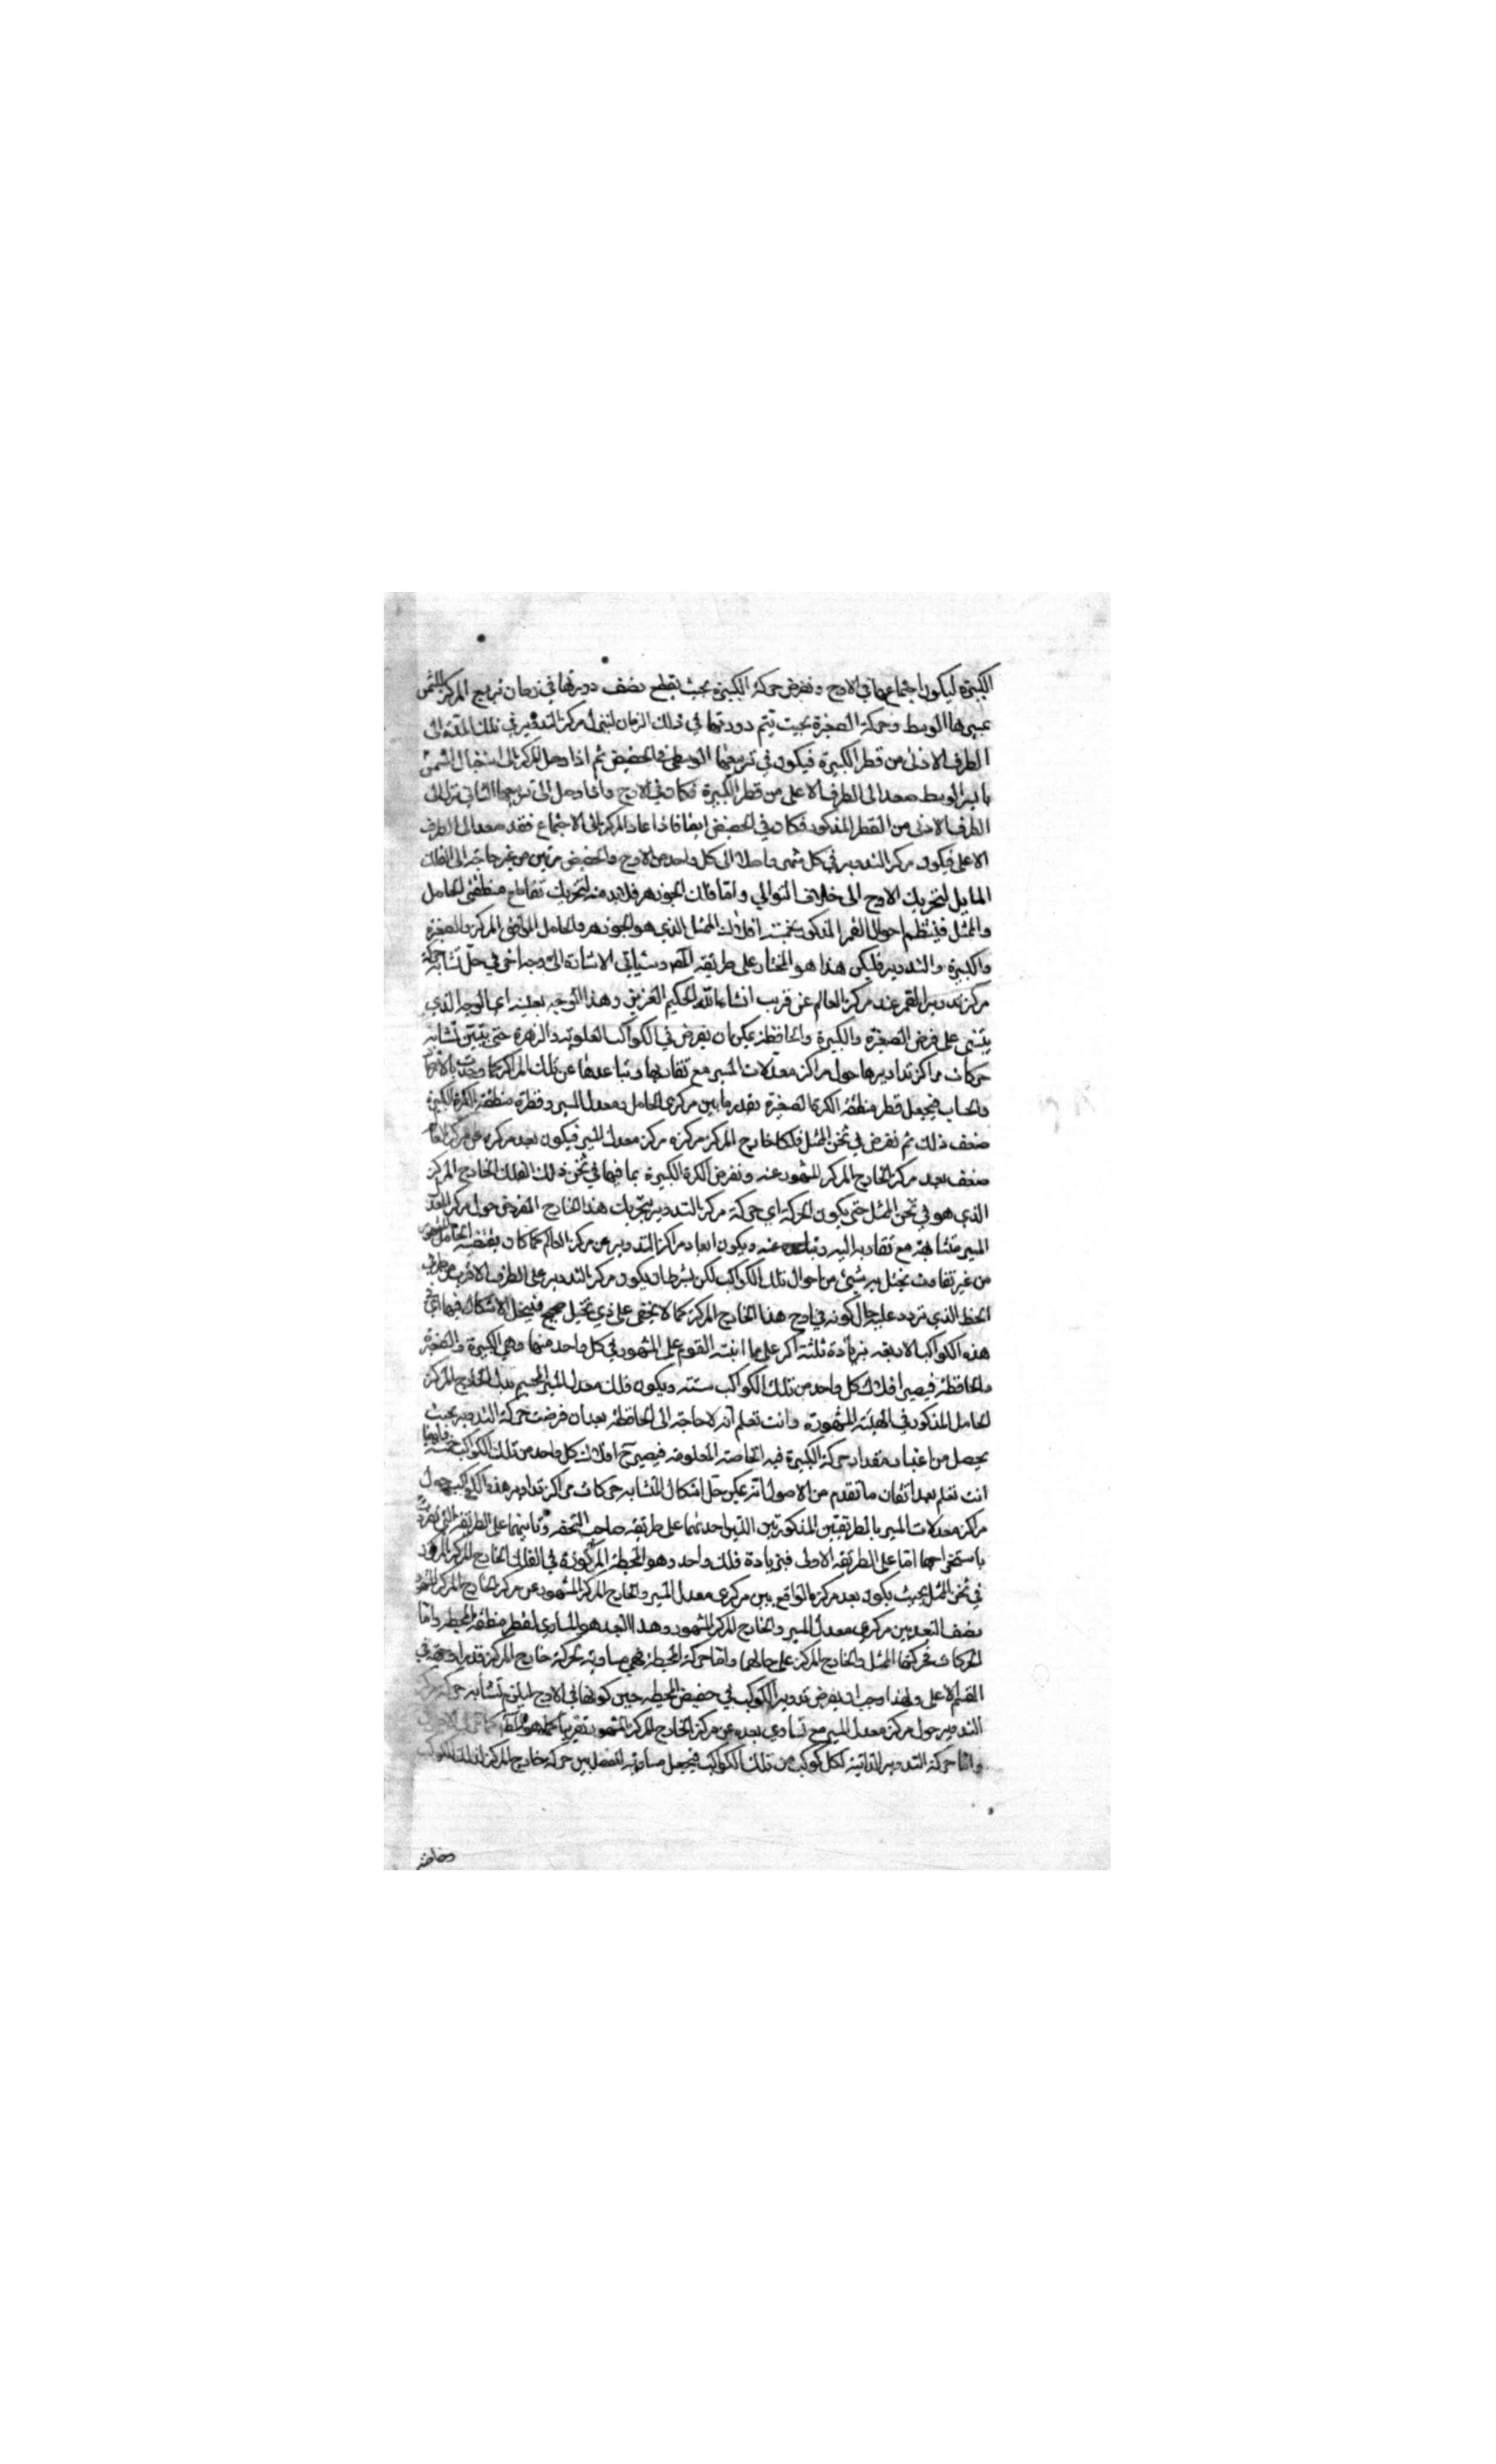 الكبيرة ليكون اجتماعهما في الاوج ونفرض حركة الكبيرة بحيث يقطع نصف دورتها في زمان تربيع المركز الشمس
عسيرها الوسط وحركة الصغيرة بحيث يتم دورتها في ذلك الزمان لينزل مركز التدوير في تلك المدة الى
الطرف الادنى من قطر الكبيرة فيكون في تربيعهما الوسطى في الحضيض ثم اذا وصل المركز الى استقبال الشمس
بالسير الوسط صعد الى الطرف الاعلى من قطر الكبيرة فكان في الاوج واذا وصل الى تربيعهما الثاني نزل الى
الطرف الادنى من القطر المذكور فكان في الحضيض ايضا فاذا عاد المركز الى الاجتماع فقد صعد الى الطرف
الاعلى فيكون مركز التدوير في كل شهر واصلا الى كل واحد من الاوج والحضيض مرتين من غير حاجة الى الفلك
المايل لتحريك الاوج الى خلاف التوالي واما فلك الجوزهر فلا بد منه لتحريك تقاطع منطقتى الحامل
والممثل فينتظم احوال القمر المذكور بخمسة افلاك الممثل الذي هو الجوزهر والحامل الموافق المركز والصغيرة
والكبيرة والتدوير فليكن هذا هو المختار على طريقة المص وسيأتي الاشارة الى وجه اخر في حل تشابه حركة
مركز تدوير القمر عند مركز العالم عن قريب انشاء الله الحكيم العزيز وهذا الوجه بعينه اي الوجه الذي
يبتنى على فرض الصغيرة والكبيرة والحافظة يمكن ان يفرض في الكواكب العلوية والزهرة حتى يتبين تشابه
حركات مراكز تداويرها حول مراكز معدلات المسير مع تقاربها وتباعدها عن تلك المراكز كما وجدت بالارصاد
والحساب فيجعل قطر منطقة الكرة الصغيرة بقدر ما بين مركزى الحامل ومعدل المسير وقطره منطقة الكرة الكبيرة
ضعف ذلك ثم نفرض في ثخن الممثل فلكا خارج المركز مركزه مركز معدل المسير فيكون بعد مركزه عن مركز العالم
ضعف بعد مركز الخارج المركز المشهور عنه ونفرض الكرة الكبيرة بما فيها في ثخن ذلك الفلك الخارج المركز
الذي هو في ثخن الممثل حتى يكون الحركة اي حركة مركز التدوير بتحريك هذا الخارج المفروض حول مركز معدل
المسير متشابهة مع تقاربه اليه وتباعده عنه ويكون ابعاد مراكز التدوير عن مركز العالم كما كان يقتضيه الحامل المشهور
من غير تفاوت يختل به شيئ من احوال تلك الكواكب لكن بشرط ان يكون مركز التدوير على الطرف الاقرب من طرفى
الخط الذي تردد عليه حال كونه في اوج هذا الخارج المركز كما لا يخفى على ذي تخيل صحيح فينحل الاشكال فيها اي في
هذه الكواكب الاربعة بزيادة ثلثة اكر على ما اثبته القوم على المشهور في كل واحد منها وهي الكبيرة والصغيرة
والحافظة فيصير افلاك كل واحد من تلك الكواكب ستة ويكون فلك معدل المسير المجسم بدل الخارج المركز
الحامل المذكور في الهيئة المشهورة وانت تعلم انه لا حاجة الى الحافظة بعد ان فرضت حركة التدوير بحيث
يحصل من اعتبار مقدار حركة الكبيرة فيه الخاصة المعلومة فيصير ح افلاك كل واحد من تلك الكواكب خمسة وايضا
انت تعلم بعد اتقان ما تقدم من الاصول انه يمكن حل اشكال التشابه حركات مراكز تداوير هذه الكواكب حول
مراكز معدلات المسير بالطريقتين المذكورتين اللتين احدهما على طريقة صاحب التحفة وثانيهما على الطريقة التي تفردت
باستخراجها اما على الطريقة الاولى فبزيادة فلك واحد وهو المحيطة المركوزة في الفلك الخارج المركز المركوز
في ثخن الممثل بحيث يكون بعد مركزه الواقع بين مركزى معدل المسير والخارج المركز المشهور عن مركز الخارج المركز المشهور
نصف البعد بين مركزي معدل المسير والخارج المركز المشهور وهذا البعد هو المساوي لقطر منطقة المحيطة واما
الحركات فحركتا الممثل والخارج المركز على حالهما واما حركة المحيطة فهي مساوية لحركة خارج المركز قدرا وجهة في
القسم الاعلى ولهذا وجب ان يفرض تدوير الكوكب في حضيض المحيطة حين كونها في الاوج ليلزم تشابه حركة مركز
التدوير حول مركز معدل المسير مع تساوي بعده عن مركز الخارج المركز المشهور تقريبا كما هو
واما حركة التدوير الذاتية لكل كوكب من تلك الكواكب فيجعل مساوية لفضل بين حركة خارج المركز لذلك الكوكب